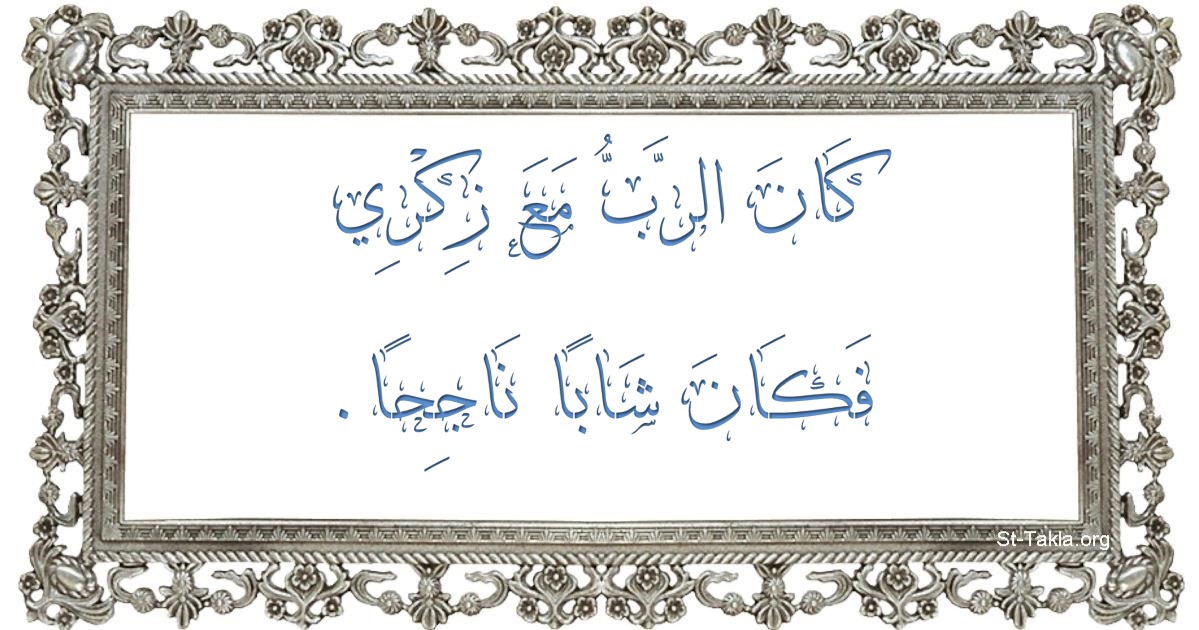 كَانَ الرَّبُّ مَعَ زِكْرِي
فَكَانَ شَابًا نَاجِحًا .
St-Takla.org